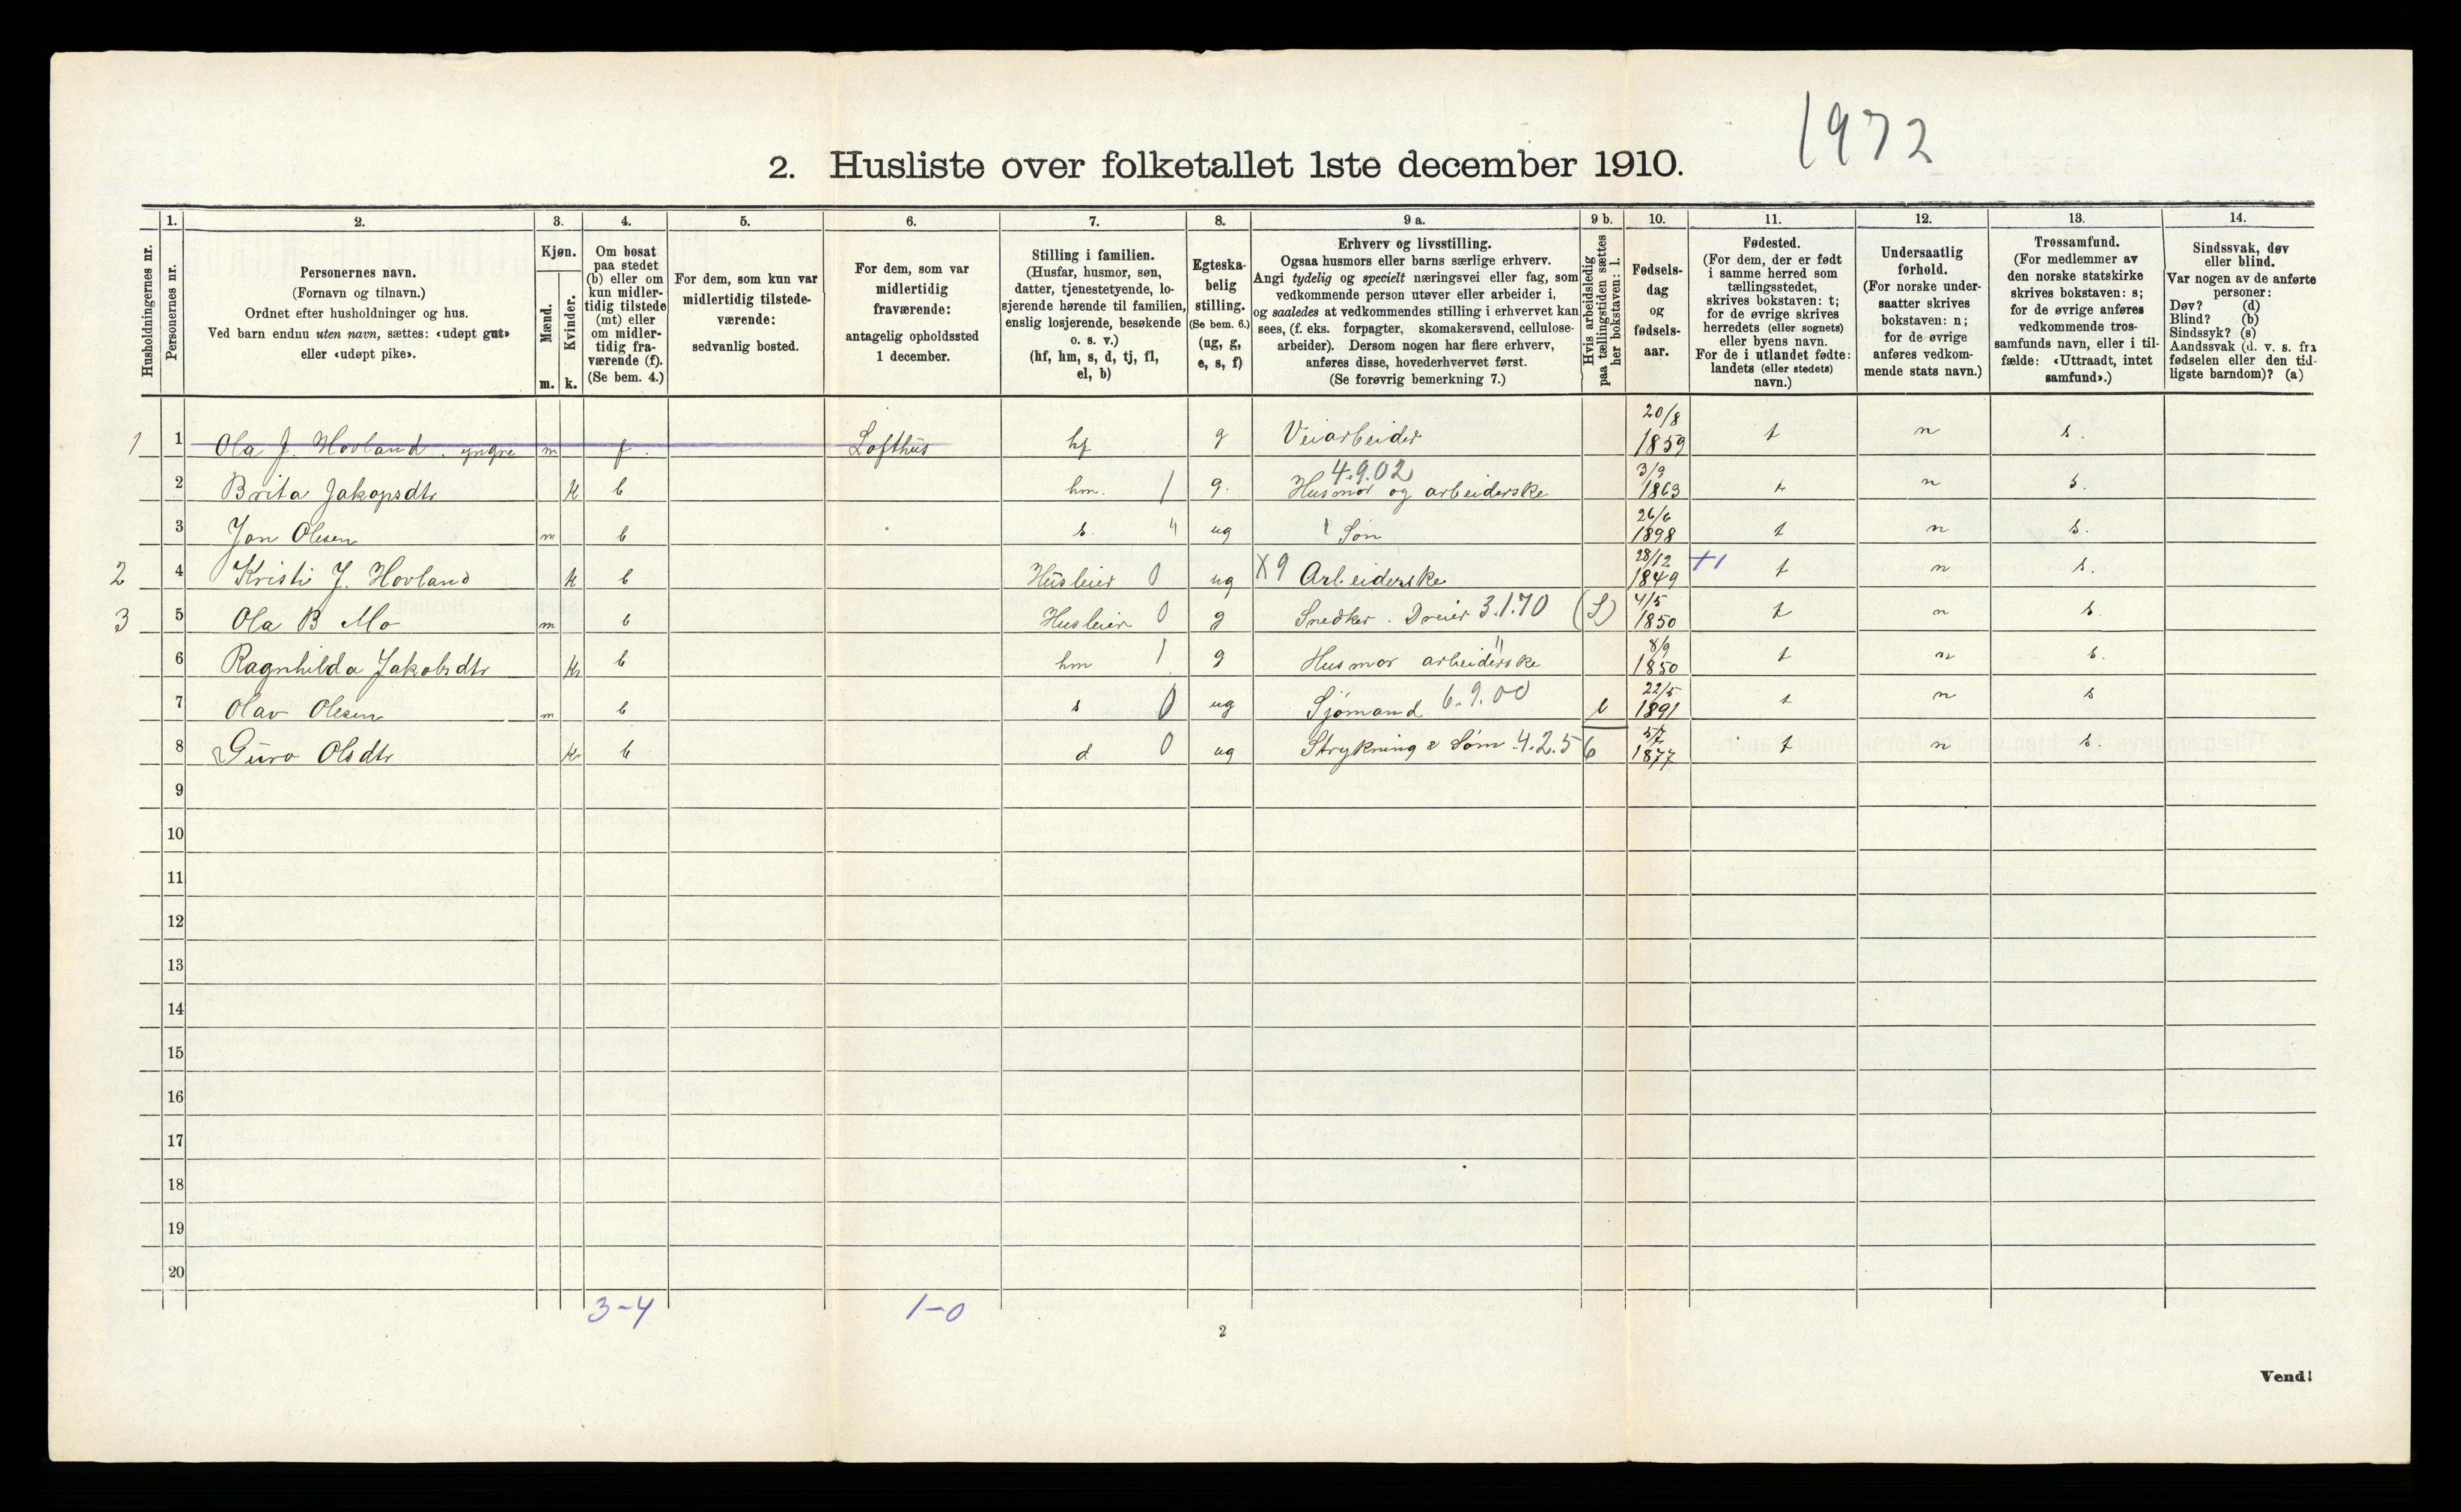 1972
2. Husliste over folketallet 1ste december 1910.
Husholdningernes nr.
1.
Personernes nr.
2.
Personernes navn.
(Fornavn og tilnavn.)
Ordnet efter husholdninger og hus.
Ved barn endnu uten navn, sættes: «udøpt gut»
eller «udøpt pike».
3.
Kjøn.
Mænd.
Kvinder.
m. k.
4.
Om bosat
paa stedet
(b) eller om
kun midler-
tidig tilstede
(mt) eller
om midler-
tidig fra-
værende (f).
(Se bem. 4.)
5.
For dem, som kun var
midlertidig tilstede-
værende:
sedvanlig bosted.
6.
For dem, som var
midlertidig
fraværende:
antagelig opholdssted
1 december.
7.
Stilling i familien.
(Husfar, husmor, søn,
datter, tjenestetyende, lo-
sjerende hørende til familien,
enslig losjerende, besøkende
o. s. v.)
(hf, hm, s, d, tj, fl,
el, b)
8.
Egteska-
belig
stilling.
(Se bem. 6.)
(ug, g,
e, s, f)
9 a.
Erhverv og livsstilling.
Ogsaa husmors eller barns særlige erhverv.
Angi tydelig og specielt næringsvei eller fag, som
vedkommende person utøver eller arbeider i,
og saaledes at vedkommendes stilling i erhvervet kan
sees, (f. eks. forpagter, skomakersvend, cellulose-
arbeider). Dersom nogen har flere erhverv,
anføres disse, hovederhvervet først.
(Se forøvrig bemerkning 7.)
9 b.
Hvis arbeidsledig
paa tællingstiden sættes
her bokstaven: l.
10.
Fødsels-
dag
og
fødsels-
aar.
11.
Fødested.
(For dem, der er født
i samme herred som
tællingsstedet,
skrives bokstaven: t;
for de øvrige skrives
herredets (eller sognets)
eller byens navn.
For de i utlandet fødte:
landets (eller stedets)
navn.)
12.
Undersaatlig
forhold.
(For norske under-
saatter skrives
bokstaven: n;
for de øvrige
anføres vedkom-
mende stats navn.)
13.
Trossamfund.
(For medlemmer av
den norske statskirke
skrives bokstaven: s;
for de øvrige anføres
vedkommende tros-
samfunds navn, eller i til-
fælde: «Uttraadt, intet
samfund».)
14.
Sindssvak, døv
eller blind.
Var nogen av de anførte
personer:
Døv? (d)
Blind? (b)
Sindssyk? (s)
Aandssvak (d. v. s. fra
fødselen eller den tid-
ligste barndom)? (a)
1 1 Ola J. Hovland. yngre m f. Lofthus hf g Veiarbeider 20/8 1859 t n s.
4.9.02
2 Brita Jakopsdtr k b hm. 1 g. Husmor og arbeiderske 3/9 1863 t n s.
3 Jon Olesen m b s. " ug Søn 26/6 1898 t n s.
2 4 Kristi J. Hovland k b Husleier 0 ug X9 Arbeiderske 28/12 1849 +1 t n s.
3 5 Ola B Mo m b Husleier 0 g Snedker. Dreier 3.1.70 (S) 4/5 1850 t n s.
6 Ragnhilda Jakobsdtr k b hm 1 g Husmor arbeiderske " 8/9 1850 t n s.
7 Olav Olesen m b s 0 ug Sjømand 6.9.00 l 22/5 1891 t n s
8 Guro Olsdtr k b d 0 ug Strykning & Søm 4.2.56 5/7 1877 t n s.
9
10
11
12
13
14
15
16
17
18
19
20
3-4 1-0
2
Vend!